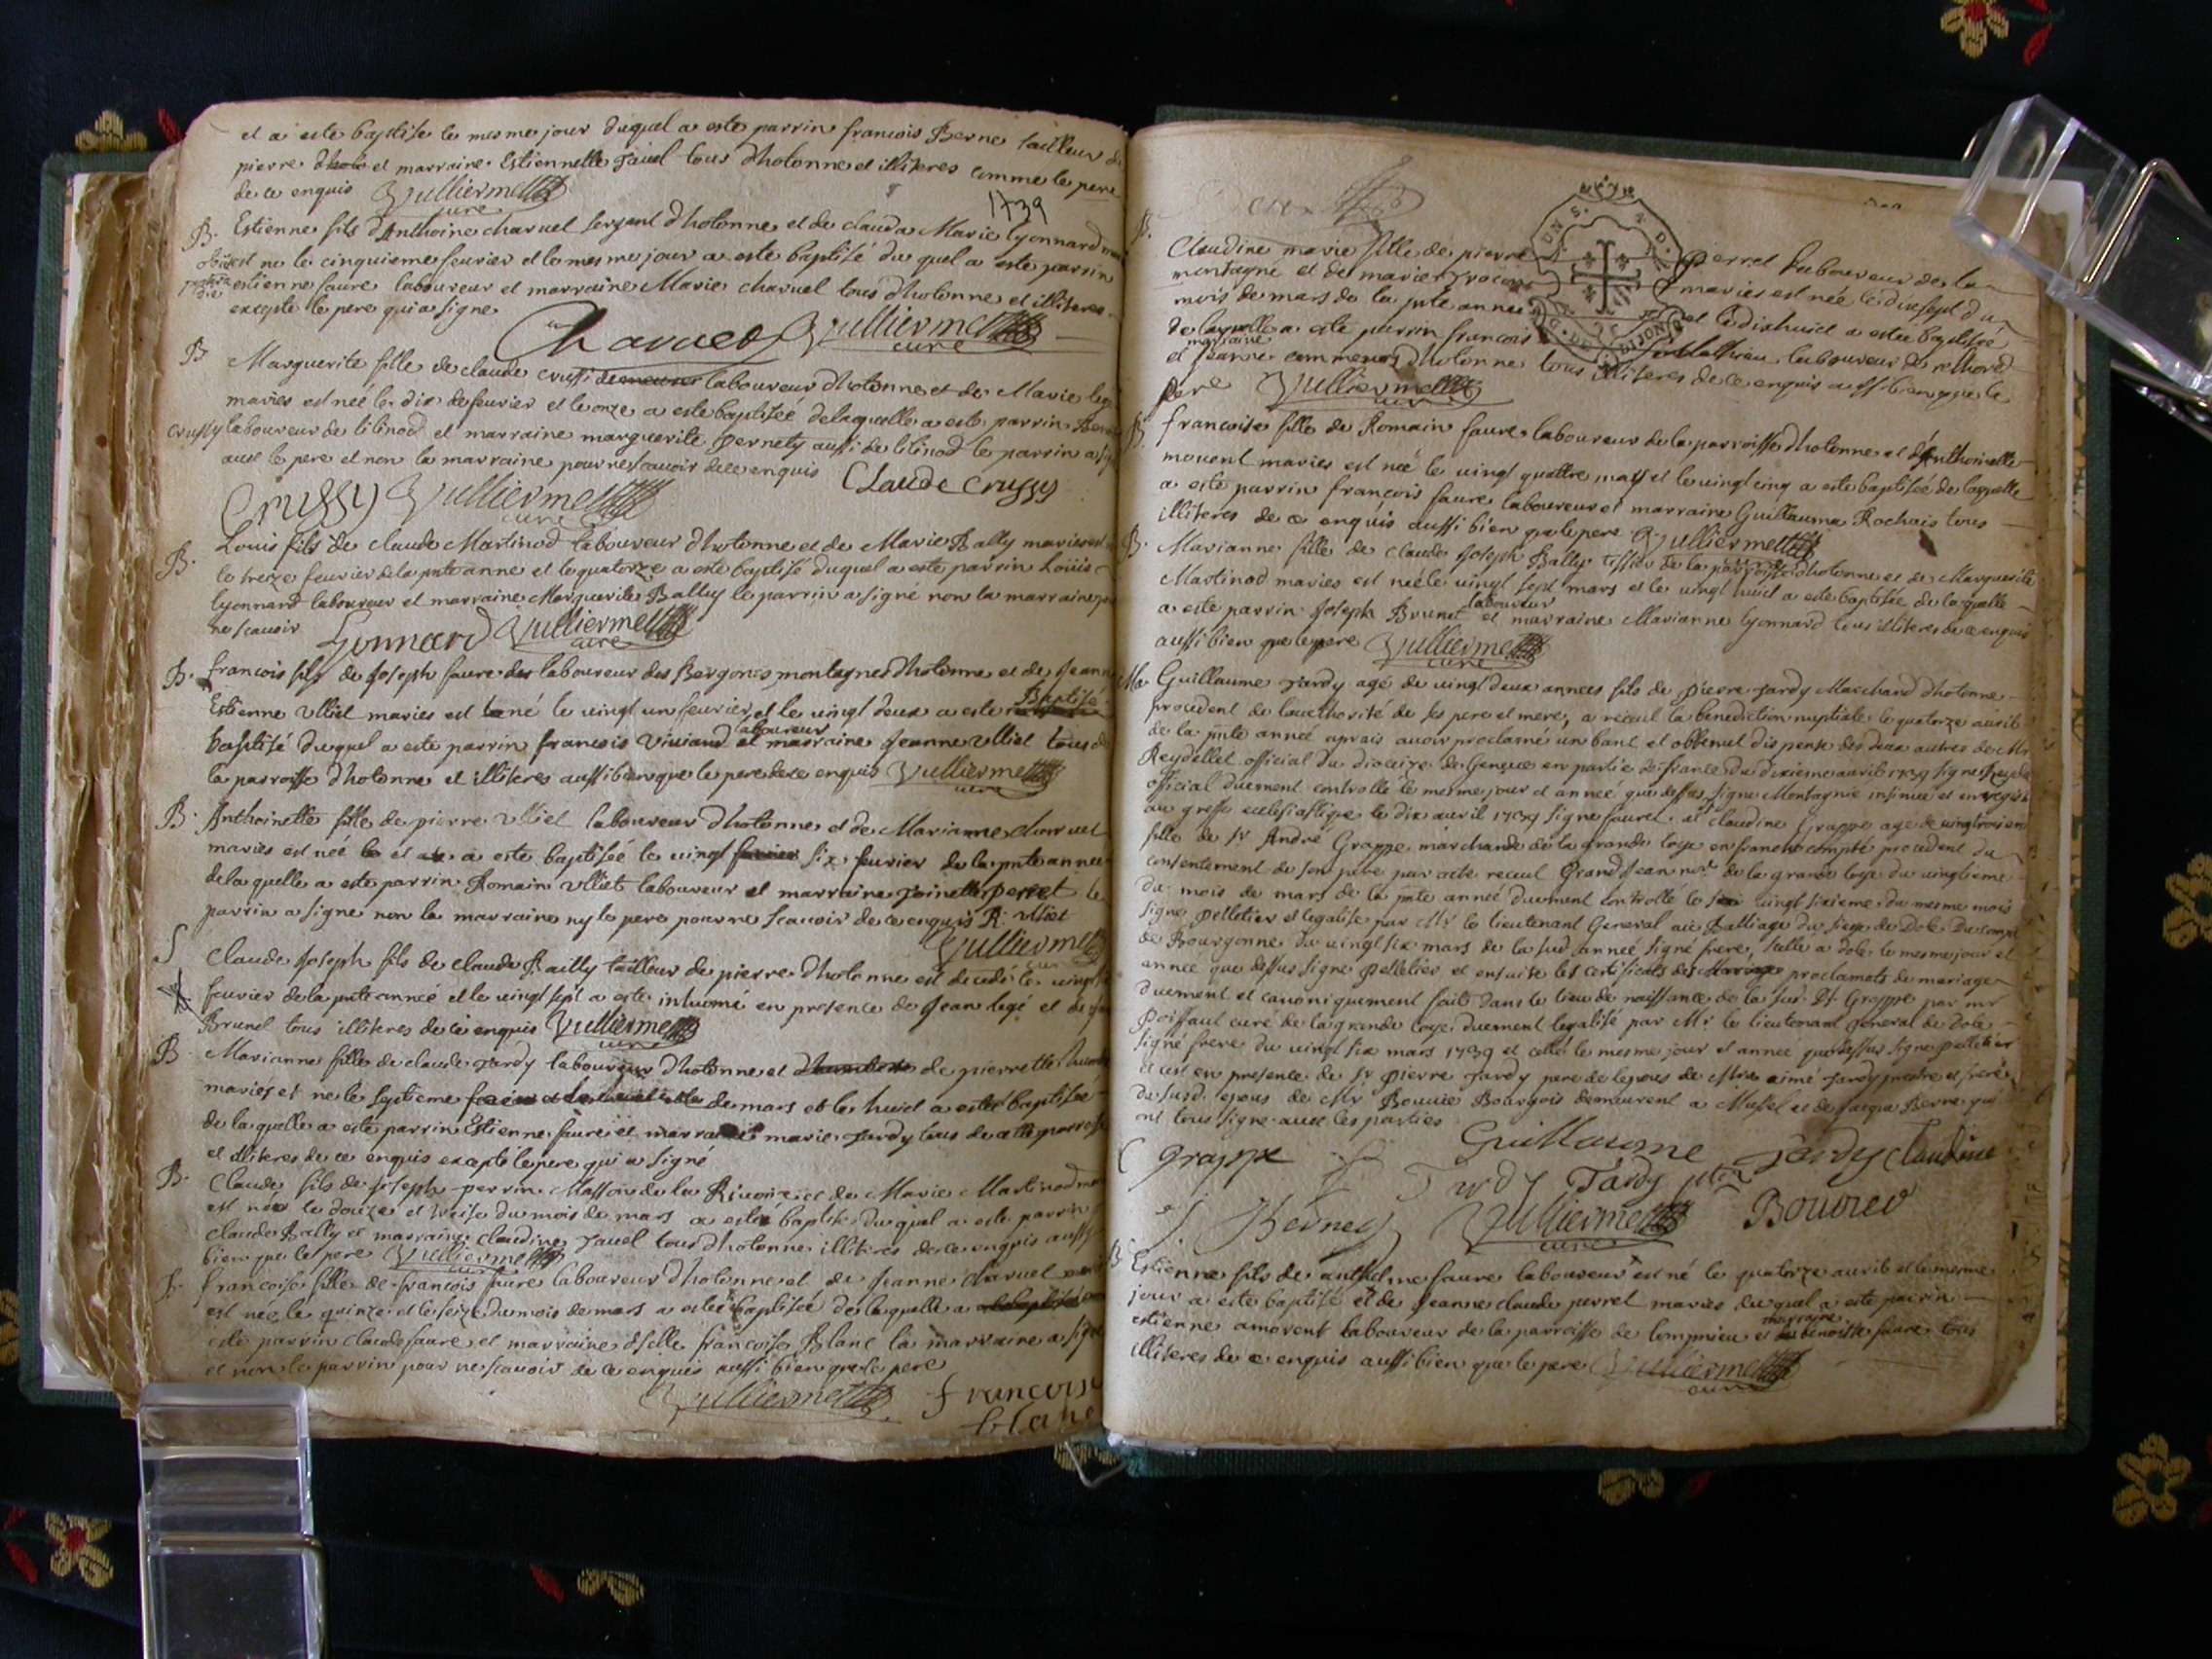 et a este baptise le mesme jour duquel a este parrin francois Berne tailleur de
pierre dhotonne et marraine Estiennette Javel tous dhotonne et illiteres comme le pere
de ce enquis Vulliermet curé
1739
B. Estienne fils d'Anthoine charvel sergent dhotonne et de clauda Marie lyonnard
est ne le cinquieme fevrier et le mesme jour a este baptisé du quel a este parrin
estienne faure laboureur et marraine Marie charvel tous dhotonne et illiteres
excepte le pere qui a signe
Charvet Vulliermet curé
B Marguerite fille de claude crussi laboureur dhotonne et de Marie
maries est née le dix de fevrier et le onze a este baptiseé de laquelle a este parrin
crussy laboureur de lilinod et marraine marguerite pernety aussi de lilinod le parrin a
avec le pere et non la marraine pour ne scavoir de ce enquis Claude Crussy
Crussy Vulliermet curé
B. Louis fils de claude Martinod laboureur dhotonne et de Marie Bally maries
le treize fevrier de la pnte anne et le quatorze a este baptisé duquel a este parrin Loüis
lyonnard laboureur et marraine Marguerite Bally le parrin a signé non la marraine
ne scavoir Lyonnard Vulliermet curé
B. francois fils de Joseph faure laboureur des Bergones montagne dhotonne et de Jeanne
Estienne Ulliet maries est né le vingt un fevrier et le vingt deux a este Baptisé
baptisé duquel a este parrin francois Viviand laboureur et marraine Jeanne Ulliet tous de
la parroisse dhotonne et illiteres aussi bien que le pere de ce enquis Vulliermet curé
B. Anthoinette fille de pierre Ulliet laboureur dhotonne et de Marianne charvet
maries est neé et a este baptiseé le vingt six fevrier de la pnte anneé
de la quelle a este parrin Romain Ulliet laboureur et marraine perret le
parrin a signe non la marraine ny le pere pour ne scavoir de ce enquis R. Ulliet
Vulliermet curé
S Claude Joseph fils de claude Bailly tailleur de pierre dhotonne est decedé le vingt
fevrier de la pnte anneé et le vingt sept a este inhumé en presence de Jean legé et de
Brunel tous illiteres de ce enquis Vulliermet curé
B. Marianne fille de claude Jardy laboureur dhotonne et de pierrette
maries et ne le septieme de mars et le huict a esteé baptiseé
de laquelle a este parrin Estienne faure et marraine marie Jardy tous de cette parroisse
et illiteres de ce enquis excepte le pere qui a signé
B. Claude fils de Joseph perrin Masson de la Rivoire et de Marie Martinod
est né le douze et treise du mois de mars a esté baptisé duquel a este parrin
claude Bally et marraine claudine Javel tous dhotonne illiteres de ce enquis aussy
bien que le pere Vulliermet curé
B. francoise fille de francois faure laboureur dhotonne et de Jeanne charvet
est neé le quinze et le seize du mois de mars a esteé baptiseé de laquelle a
este parrin claude faure et marraine francoise Blanc la marraine a signe
et non le parrin pour ne scavoir de ce enquis aussi bien que le pere
Vulliermet francoise
blanc
B. Claudine marie fille de pierre perret laboureur de la
montagne et de marie maries est née le dixsept du
mois de mars de la pnte anneé et le dixhuict a esteé baptiseé
de laquelle a este parrin francois Mathieu laboureur de
et marraine Jeanne dhotonne tous illiteres de ce enquis aussi bien que le
pere Vulliermet curé
B. francoise fille de Romain faure laboureur de la parroisse dhotonne et d'Anthoinette
maries est neé le vingt quattre mars et le vingt cinq a este baptiseé de laquelle
a este parrin francois faure laboureur et marraine Guillauma Rochais tous
illiteres de ce enquis aussi bien que le pere Vulliermet
B. Marianne fille de claude Joseph Bally tissier de la parroisse dhotonne et de Marguerite
Martinod maries est neé le vingt sept mars et le vingt huict a este baptiseé de laquelle
a este parrin Joseph Brunet laboureur et marraine Marianne lyonnard tous illiteres de ce enquis
aussi bien que le pere Vulliermet curé
Ma Guillaume Jardy agé de vingt deux annees fils de pierre Jardy Marchand dhotonne
procedent de laucthorité de ses pere et mere, a receut la benediction nuptiale le quatorze avril
de la pnte anneé aprais avoir proclamé un banc et obtenut dispense des deux autres de Mr
Reydellet official du dioceze de Geneve en partie de france du dixieme avril 1739 signe Reydelet
official duement controllé le mesme jour et anneé que dessus signe Montagnie insinué et
au greffe ecclesiastique le dix avril 1739 signe fauret. et claudine Grappe age de vingt trois ans
fille de Sr André Grappe marchand de la grande loye en franche compté procedent du
consentement de son pere par acte receut Grandjean nore de la grande loye du vingtieme
du mois de mars de la pnte anneé duement controllé le vingt sixieme du mesme mois
signe pelletier et legalise par Mr le lieutenant General au Balliage du siege de Dole
de Bourgonne du vingt six mars de la sud anneé signé frere, scelle a Dole le mesme jour et
anneé que dessus signe pelletier et ensuite les certificats des proclamats de mariage
duement et canoniquement faits dans le lieu de naissance de la sud. Grappe par mr
poissaut curé de la grande loye duement legalisé par Mr le lieutenant general de Dole
signé frere du vingt six mars 1739 et le mesme jour et anneé que dessus signe pelletier
et est en presence de Sr pierre Jardy pere de lepous de Mre aimé Jardy prestre et frere
du susd. epous de Mr Bouvié Bourgois demeurent a Mussel et de Berne qui
ont tous signe avec les parties
Guillaume Jardy Claudine
Grappe Tardy Tardy ptre
J. Berne Vulliermet curé Bouvier
B Estienne fils de anthelme faure laboureur est né le quatorze avril et le mesme
jour a este baptisé et de Jeanne claude perret maries duquel a este parrin
estienne laboureur de la parroisse de lompnieu et marraine benoitte faure tous
illiteres de ce enquis aussi bien que le pere Vulliermet curé